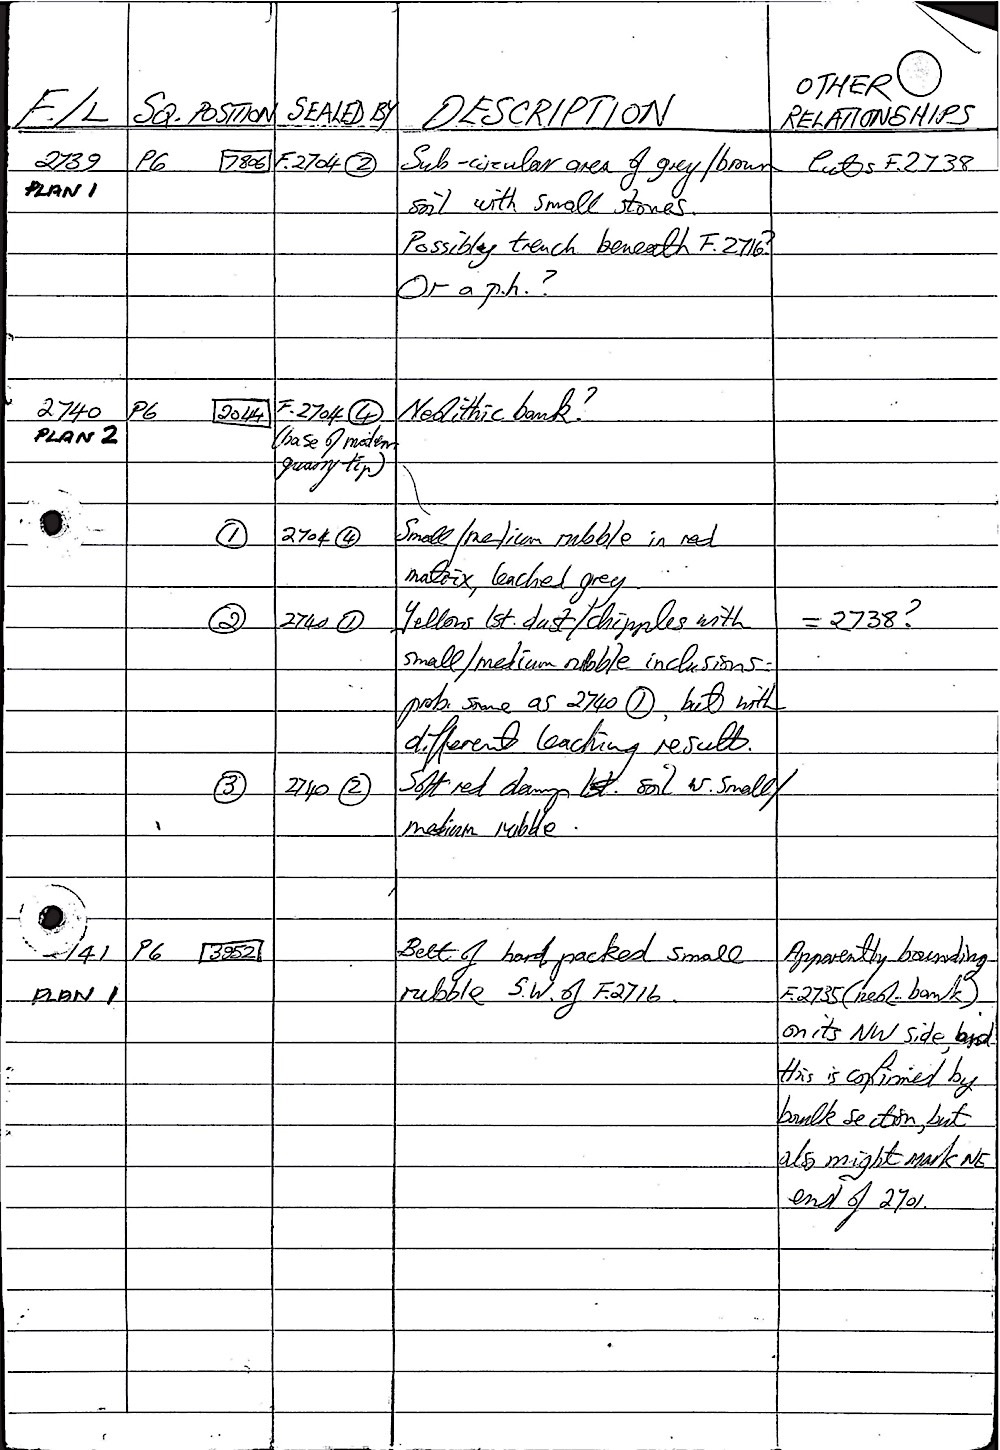 F./L SQ. POSITION SEALED BY DESCRIPTION OTHER RELATIONSHIPS
2739 P6 7806 F.2704 ② Sub-circular area of grey/brown Cuts F.2738
PLAN 1 soil with small stones.
Possibly trench beneath F.2716?
Or a p.h.?
2740 P6 2044 F.2704 ④ Neolithic bank?
PLAN 2 (base of modern
quarry tip)
① 2704 ④ Small/medium rubble in red
matrix, leached grey
② 2740 ① Yellow lst. dust/chipples with = 2738?
small/medium rubble inclusions -
prob. same as 2740 ①, but with
different leaching result.
③ 2740 ② Soft red damp lst. soil w. small/
medium rubble.
41 P6 3952 Belt of hard packed small Apparently bounding
PLAN 1 rubble S.W. of F.2716. F.2735 (neol. bank)
on its NW side, and
this is confirmed by
baulk section, but
also might mark NE
end of 2701.